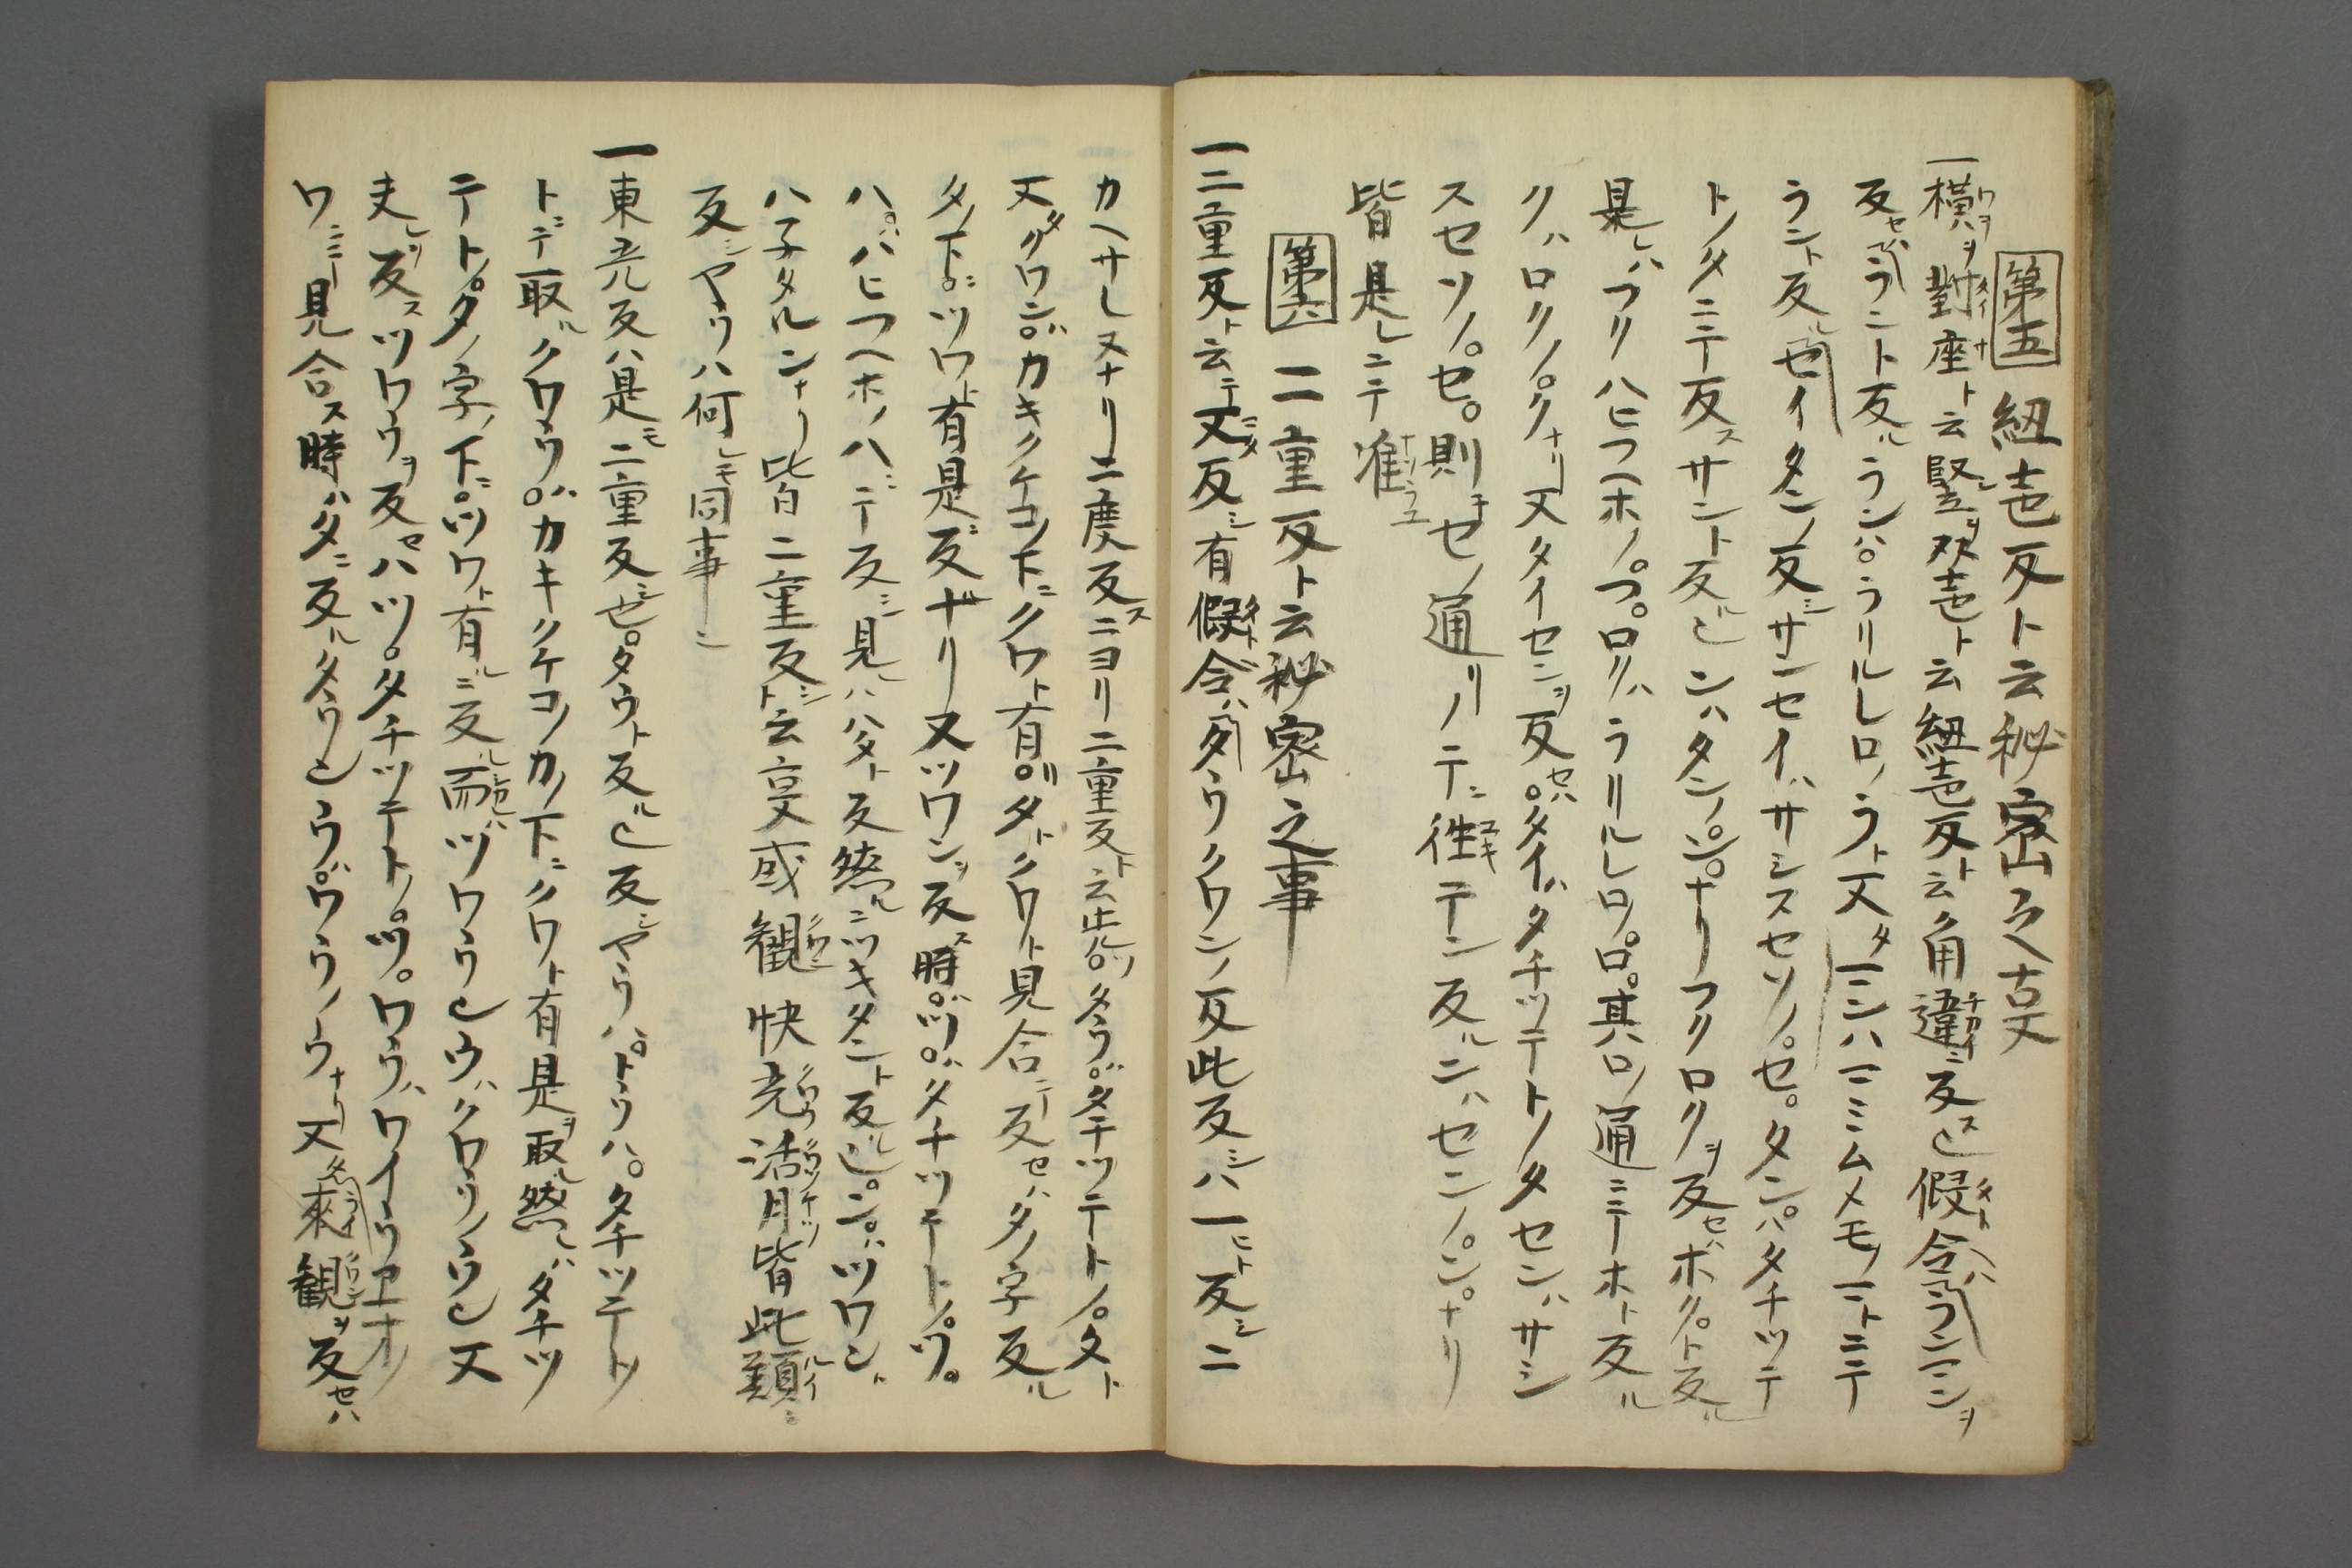 第五 紐声反ト云秘密之古文
一横ヲ對座ト云竪ヲ双声ト云紐声反ト云角違ニ反ス也假令ハランマンヲ
反セハラント反ルランハ。ラリルレロノラト又マンハマミムメモノマトニテ
ラント反ルセイタンノ反シサンセイハサシスセソノ。セ。タンハタチツテ
トノタニテ反スサント反ル也ンハタンノ。ン。ナリフクロクヲ反セハホクト反ル
是レハフクハヒフヘホノ。フ。ロクハラリルレロノ。ロ。其ロノ通ニテホト反ル
クハロクノ。クナリ又タイセンヲ反セハ。タイハタチツテトノタセンハサシ
スセソノ。セ。則チセノ通リノテニ徃テテン反ルンハセンノ。ン。ナリ
皆是レニテ准フ
第六 二重反ト云秘密之事
一二重反ト云テ又反シ有假令ハタウクワンノ反此反シハ一反シ二
カヘサレヌナリ二度反スニヨリ二重反ト云先ツ。タウ。ハタチツテトノ。タト
又クワン。ハカキクケコノ下ニクワト有。リタトクワト見合テ反セハタノ字反ル
タノ下。ニツワト有是ニ反ナリ又ツワンヲ反ス時。ハツ。ハタチツテトノ。ツ。
ハ。ハハヒフヘホノハニテ反シ見レハハタト反然ルニツキタント反ル也。ン。ハツワント
ハ子タルンナリ皆二重反シト云事或観快光活月皆此類ニ
反シヤウハ何レモ同事
一東光反ハ是モ二重反シ也。タウト反ル也反シヤウハ。トウハ。タチツテト
トニテ取ルクワウ。ハカキクケコノカノ下ニクワト有是ヲ取ル然レハタチツ
テト。タノ字ノ下。ニツワト有ルニ反ル而ハツワウ也ウハクワウノウ也又
夫レヲ反スツワウヲ反セハツ。タチツテトノ。ツ。ワウハワイウヱオノ
ワニテ見合ス時ハタニ反ルタウ也ウ。ハワウノウナリ又來観ヲ反セハ